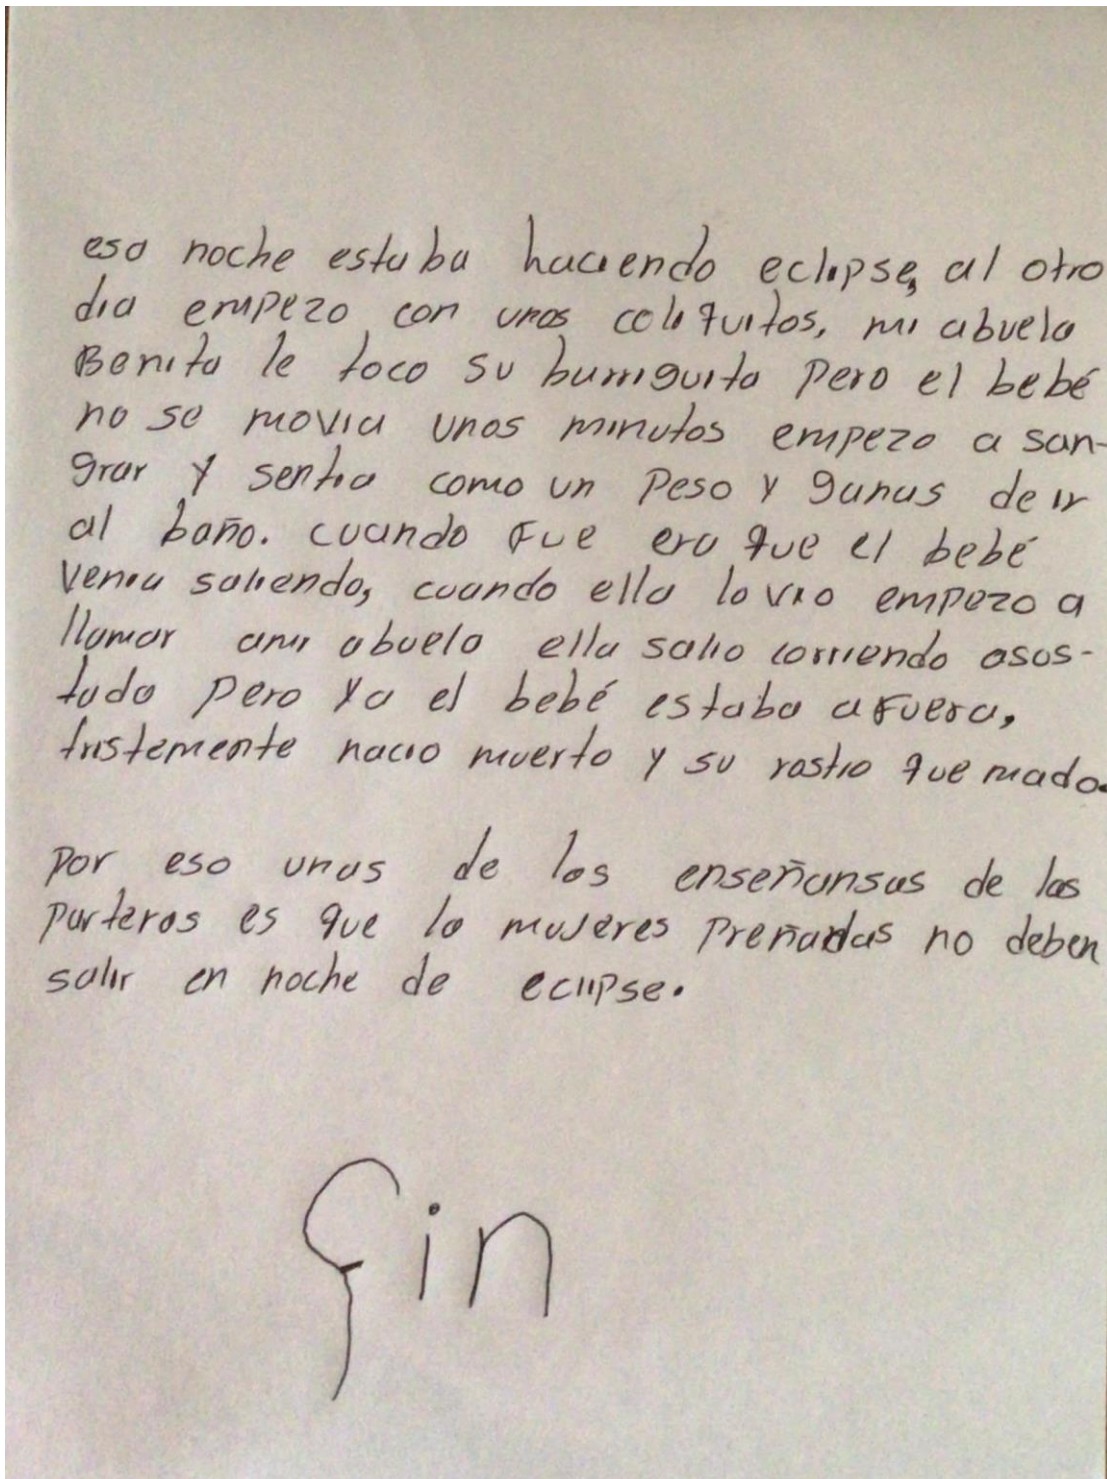 esa noche estaba haciendo eclipse, al otro
dia empezo con unos coliquitos, mi abuela
Benita le toco su barriguita pero el bebé
no se movia unos minutos empezo a san-
grar y sentia como un peso y ganas de ir
al baño. cuando fue era que el bebé
venia saliendo, cuando ella lo vio empezo a
llamar ami abuela ella salio corriendo asus-
tada pero ya el bebé estaba afuera,
tristemente nacio muerto y su rostro quemado.
por eso unas de las enseñansas de las
parteras es que la mujeres preñadas no deben
salir en noche de eclipse.
Fin